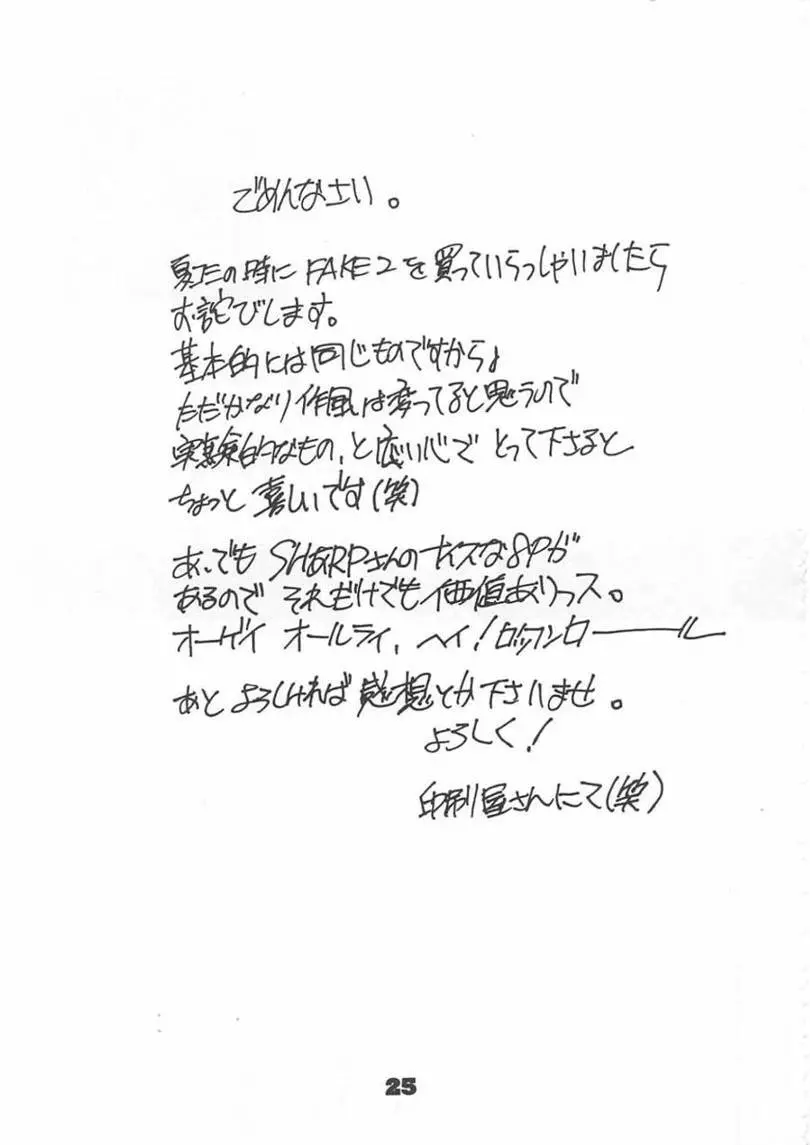 ごめんなさい。
夏コミの時に FAKE2を買っていらっしゃいましたら
お詫びします。
基本的には同じものですから
ただかなり作風は変ってると思うので
実験的なもの、と広い心で とって下さると
ちょっと 嬉しいです(笑)
あ、でも SHARPさんの ナイスな8Pが
あるので それだけでも 価値ありっス。
オーゲイ オールライ、ヘイ!ロックンロール
あと よろしければ 感想とか下さいませ。
よろしく!
印刷屋さんにて(笑)
25